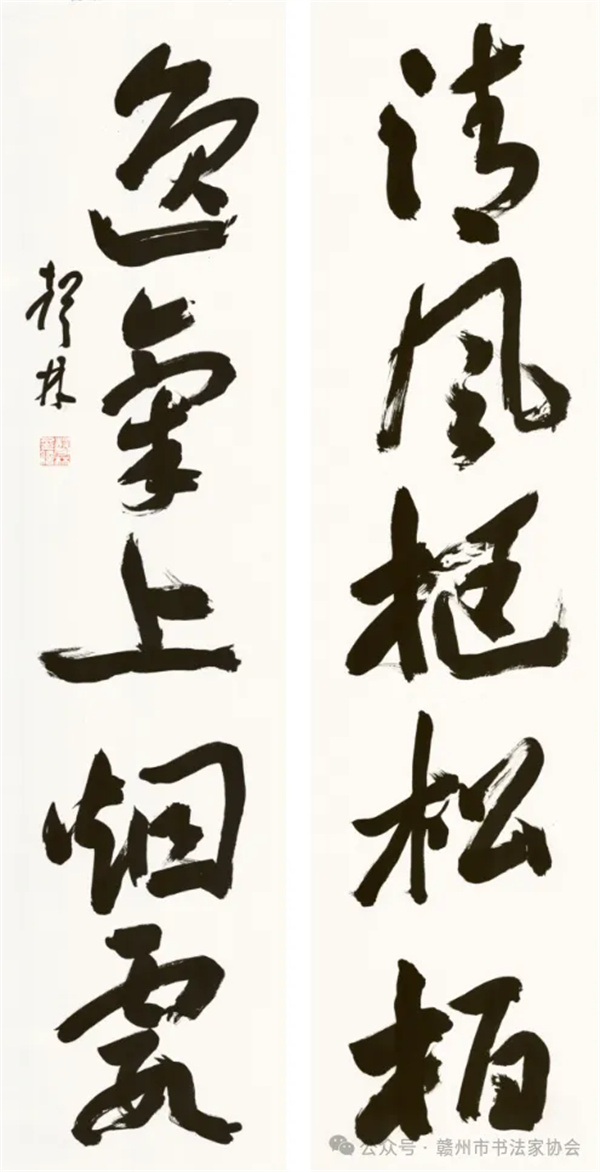 清風挺松柏
逸氣上烟霞
公众号 · 赣州市书法家协会